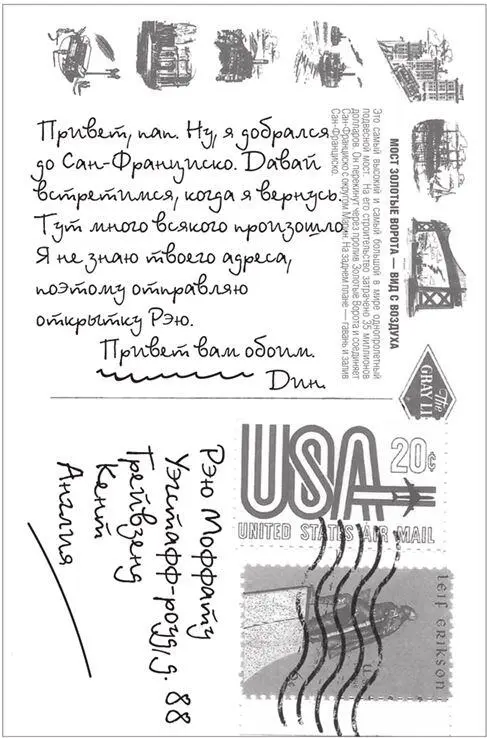 Привет, пап. Ну, я добрался
до Сан-Франциско. Давай
встретимся, когда я вернусь.
Тут много всякого произошло.
Я не знаю твоего адреса,
поэтому отправляю
открытку Рэю.
Привет вам обоим.
Дин.
МОСТ ЗОЛОТЫЕ ВОРОТА — ВИД С ВОЗДУХА
Это самый высокий и самый большой в мире однопролетный
подвесной мост. На его строительство затрачено 35 миллионов
долларов. Он перекинут через пролив Золотые Ворота и соединяет
Сан-Франциско с округом Марин. На заднем плане — гавань и залив
Сан-Франциско.
The
GRAY LI
Рэю Моффату
Уэгстафф-роуд, д. 88
Грейвзенд
Кент
Англия
USA 20¢
UNITED STATES AIR MAIL
LEIF ERIKSON